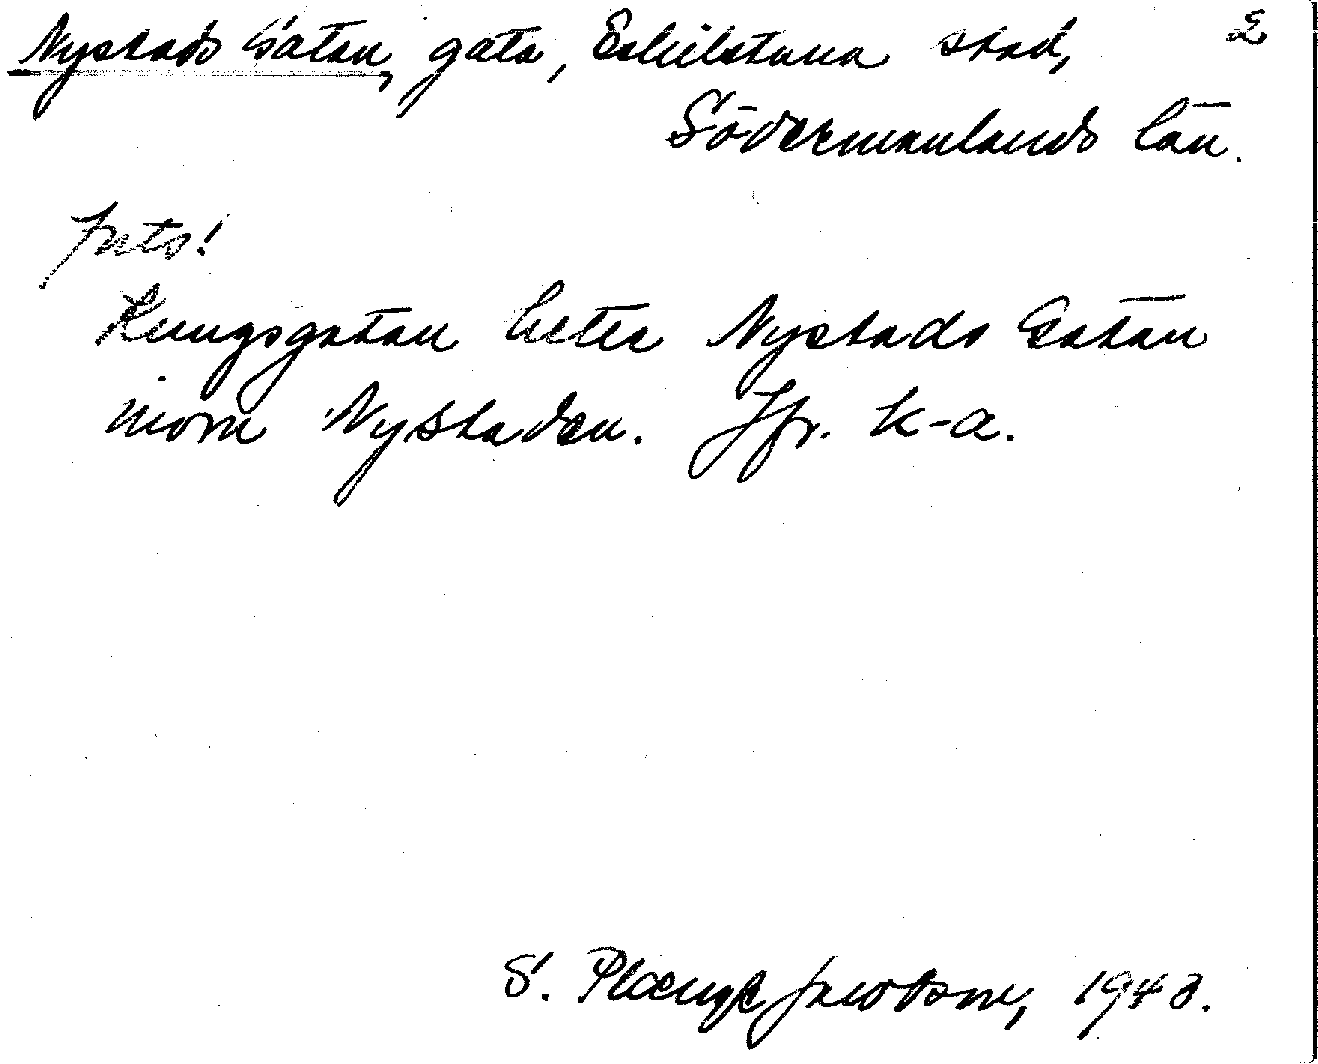 Nystads Gatan, gata, Eskilstuna stad, 2
Södermanlands län.
Kungsgatan heter Nystads Gatan
inom Nystaden. Jfr. k-a.
S. Jacobson, 1943.